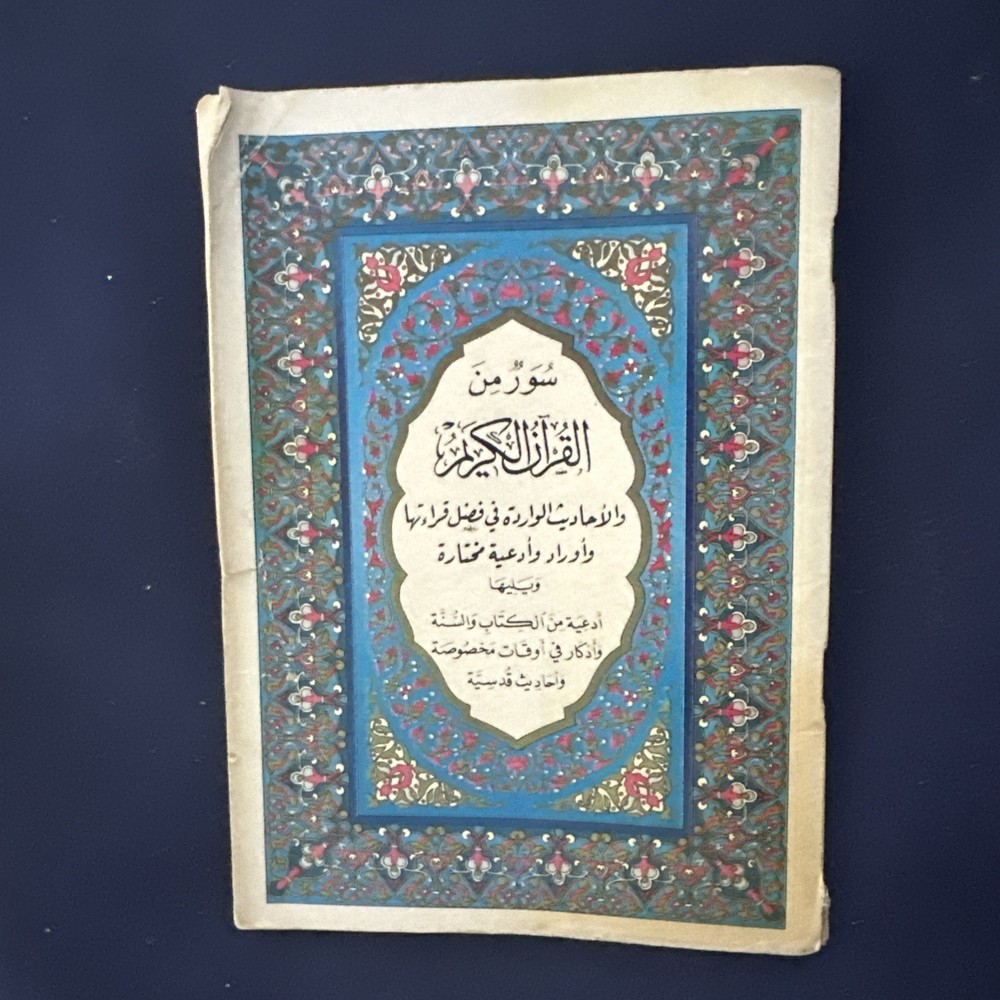 سُوَرٌ مِنَ
القُرآنِ الكَرِيمِ
والأحاديث الواردة في فضل قراءتها
وأوراد وأدعية مختارة
وَيَلِيهَا
أدعية مِنَ الكِتَابِ وَالسُّنَّة
وَأذكار في أوقَات مَخصُوصَة
وَأحَادِيث قُدسِيَّة